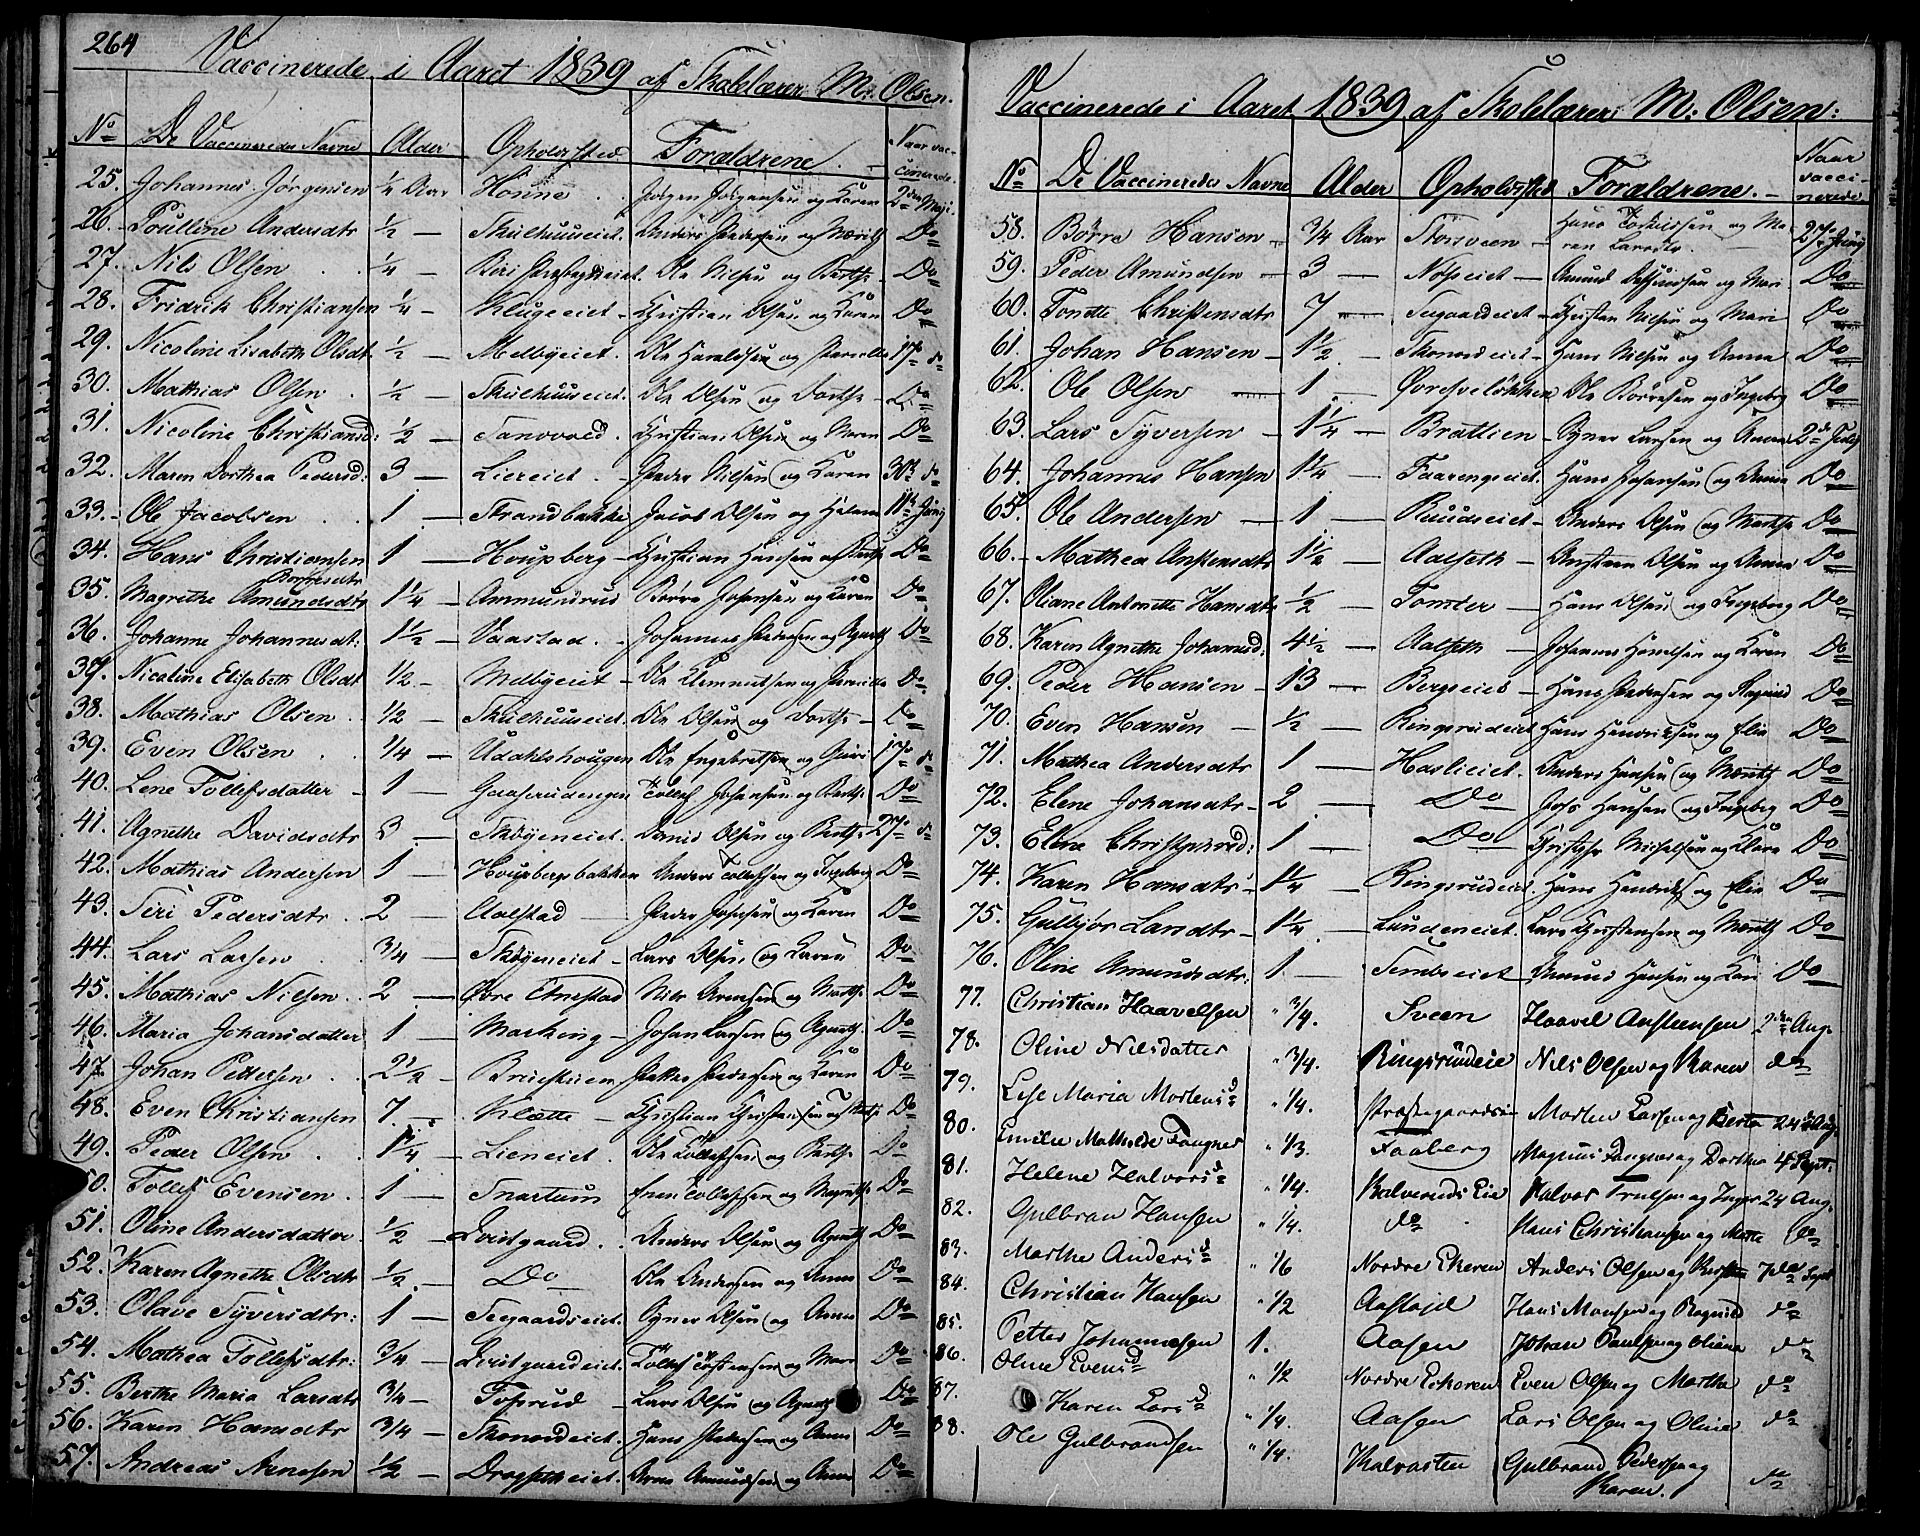 264
Vaccinerede i Aaret 1839 af Skolelærer M: Olsen.
No De Vaccineredes Navne Alder Opholdssted Forældrene. Naar vaccinerede.
25. Johannes Jørgensen 1/4 Aar Hønne Jørgen Jørgensen og Karen 2den Maji
26. Poulline Andersdtr 1/2 Skulhuuseiet. Anders Pedersen og Do
27. Nils Olsen 1/4 Ole Nilsen og Berthe Do
28. Fridrik Christiansen 1/4 Klugeeiet Christian Olsen og Karen Do
29. Nicoline Lisabeth Olsdt. 1/2 Melbyeiet Ole og Pernille 17de d
30. Mathias Olsen 1/2 Skulhuuseiet. Ole Olsen og Dorthe Do
31. Nicoline Christiansd: 1/2 Sandvold. Christian Olsen og Maren Do
32. Maren Dorthea Pedersd: 3 Liereiet Peder Nilsen og Karen 30te d
33. Ole Jacobsen 1 Strandbakke Jacob Olsen og Helene 11te Junij
34. Hans Christiansen 1 Houpberg Christian Hansen og Berthe Do
35. Magrethe Amundsdtr Børresdtr 1 1/4 Ammundrud Børre Johansen og Karen Do
36. Johanne Johannesdt: 1 1/2 Vaastad. Johannes Pedersen og Agnethe Do
37. Nicoline Elisabeth Olsdt 1/2 Melbyeiet Ole Clemmetsen og Pernille Do
38. Mathias Olsen 1/2 Skulhuuseiet. Ole Olsen og Dorthe Do
39. Even Olsen 1/4 Udahlshougen Ole Engebretsen og Guri 17de d
40. Lene Tollefsdatter 1 Gaaserudengen Tollef Johansen og Berthe Do
41. Agnethe Davidsdtr 3 Skøyeneiet. David Olsen og Berthe 27de d
42. Mathias Andersen 1 Houpbergbakken Anders Tollefsen og Ingeborg Do
43. Siri Pedersdtr 2 Aalstad Peder Josepsen og Karen Do
44. Lars Larsen 3/4 Skøyeneiet Lars Olsen og Karen Do
45. Mathias Nielsen 2 Øvre Elnestad Nils Arnesen og Marthe Do
46. Maria Johansdatter 1 Marking Johan Larsen og Agnethe Do
47. Johan Pettersen 2 1/2 Petter Pedersen og Karen Do
48. Even Christiansen 7 Klætte Christian Christiansen og Do
49. Peder Olsen 1 1/4 Lieneiet Ole Tollefsen og Berthe Do
50. Tollef Evensen 1 Snartum Even Tollefsen og Magrethe Do
51. Oline Andersdatter 1/2 Qvistgaard. Anders Olsen og Agnethe Do
52. Karen Agnethe Olsdtr 1/2 Do Ole Andersen og Anne Do
53. Olave Syversdtr: 1 Seegaardseiet. Syver Olsen og Anne Do
54. Mathea Tollefsdtr: 3/4 Qvistgaardeiet. Tollef Torstensen og Mari Do
55. Berthe Maria Larsdtr 3/4 Fosrud Lars Olsen og Agnethe Do
56. Karen Hansdtr 3/4 Skonordeiet. Hans Pedersen og Anne Do
57. Andreas Arnesen 1/2 Dragsetheiet. Arne Amundsen og Anne Do
Vaccinerede i Aaret 1839 af Skolelærer M: Olsen:
No De Vaccinerede Navne Alder Opholdssted Forældrene. Naar vaccinerede
58. Børre Hansen 3/4 Aar Storsveen Hans og Maren Larsdtr 2den Junij
59. Peder Amundsen 3 Nosseiet Amund og Mari Do
60. Tonette Christensdtr 7 Seegaardeiet Christen Nilsen og Mari Do
61. Johan Hansen 1 1/2 Skonordeiet Hans Nilsen og Anne Do
62. Ole Olsen 1 Øvresveløkken Ole Børresen og Ingeborg Do
63. Lars Syversen 1 1/4 Brattlien Syver Larsen og Anne 2de Julij
64. Johannes Hansen 1 1/4 Faarengeiet Hans Johansen og Anne Do
65. Ole Andersen 1 Ruudseiet Anders Olsen og Marthe Do
66. Mathea Anstensdtr 1 1/2 Aalseth Ansteen Olsen og Anne Do
67. Oliane Antonette Hansdtr 1/2 Tomter Hans Olsen og Ingeborg Do
68. Karen Agnethe Johansd: 4 1/2 Aalseth Johannes og Karen Do
69. Peder Hansen 13 Bergseiet Hans Pedersen og Ragnild Do
70. Even Hansen 1/2 Ringsrudeiet Hans Hendriksen og Elie Do
71. Mathea Andersdtr 1 Haslieiet. Anders Hansen og Do
72. Elene Johansdtr 2 Do Johs Hansen og Ingeborg Do
73. Elene Christophersd: 1 Do Christopher Michelsen og Klara Do
74. Karen Hansdtr 1 1/4 Ringsrudeiet Hans Hendriks og Elie Do
75. Gulbjør Larsdtr 1 1/4 Lundeneiet. Lars Christensen og Do
76. Oline Amundsdtr 1 Amund Hansen og Kari Do
77. Christian Haavelsen " 3/4. Sveen Haavel Anstensen 2den Aug.
78. Oline Nilsdatter " 3/4. Ringsrudeie Nils Olsen og Karen do
79. Lise Maria Mortensd " 1/4. Præstegaards Morten Larsen og Berta 24de Aug.
80. Emilie Mathilde Fangner " 1/3. Faaberg Magnus Fangner og Dorthea 4 Sept.
81. Helene Halvorsd " 1/4. Kalveruds Eie Halvor Truelsen og Inger 24 Aug.
82. Gulbran Hansen " 1/4. do Hans Christiansen og Mette do
83. Marthe Andersd " 1/6 Nordre Ekeren Anders Olsen og Kersten 7de Sept
84. Christian Hansen " 1/2 Aastajd Hans Monsen og Ragnild do
85. Petter Johannesen 1. Aasen Johan Paulsen og Oliana do
86. Oline Evensd " 1/2 Nordre Eckeren Even Olsen og Marthe do
87. Karen Larsd " 1/4. Aasen Lars Olsen og Oline do
88. Ole Gulbrandsen " 1/4. Kalvasten Gulbrand Pedersen og Karen. do